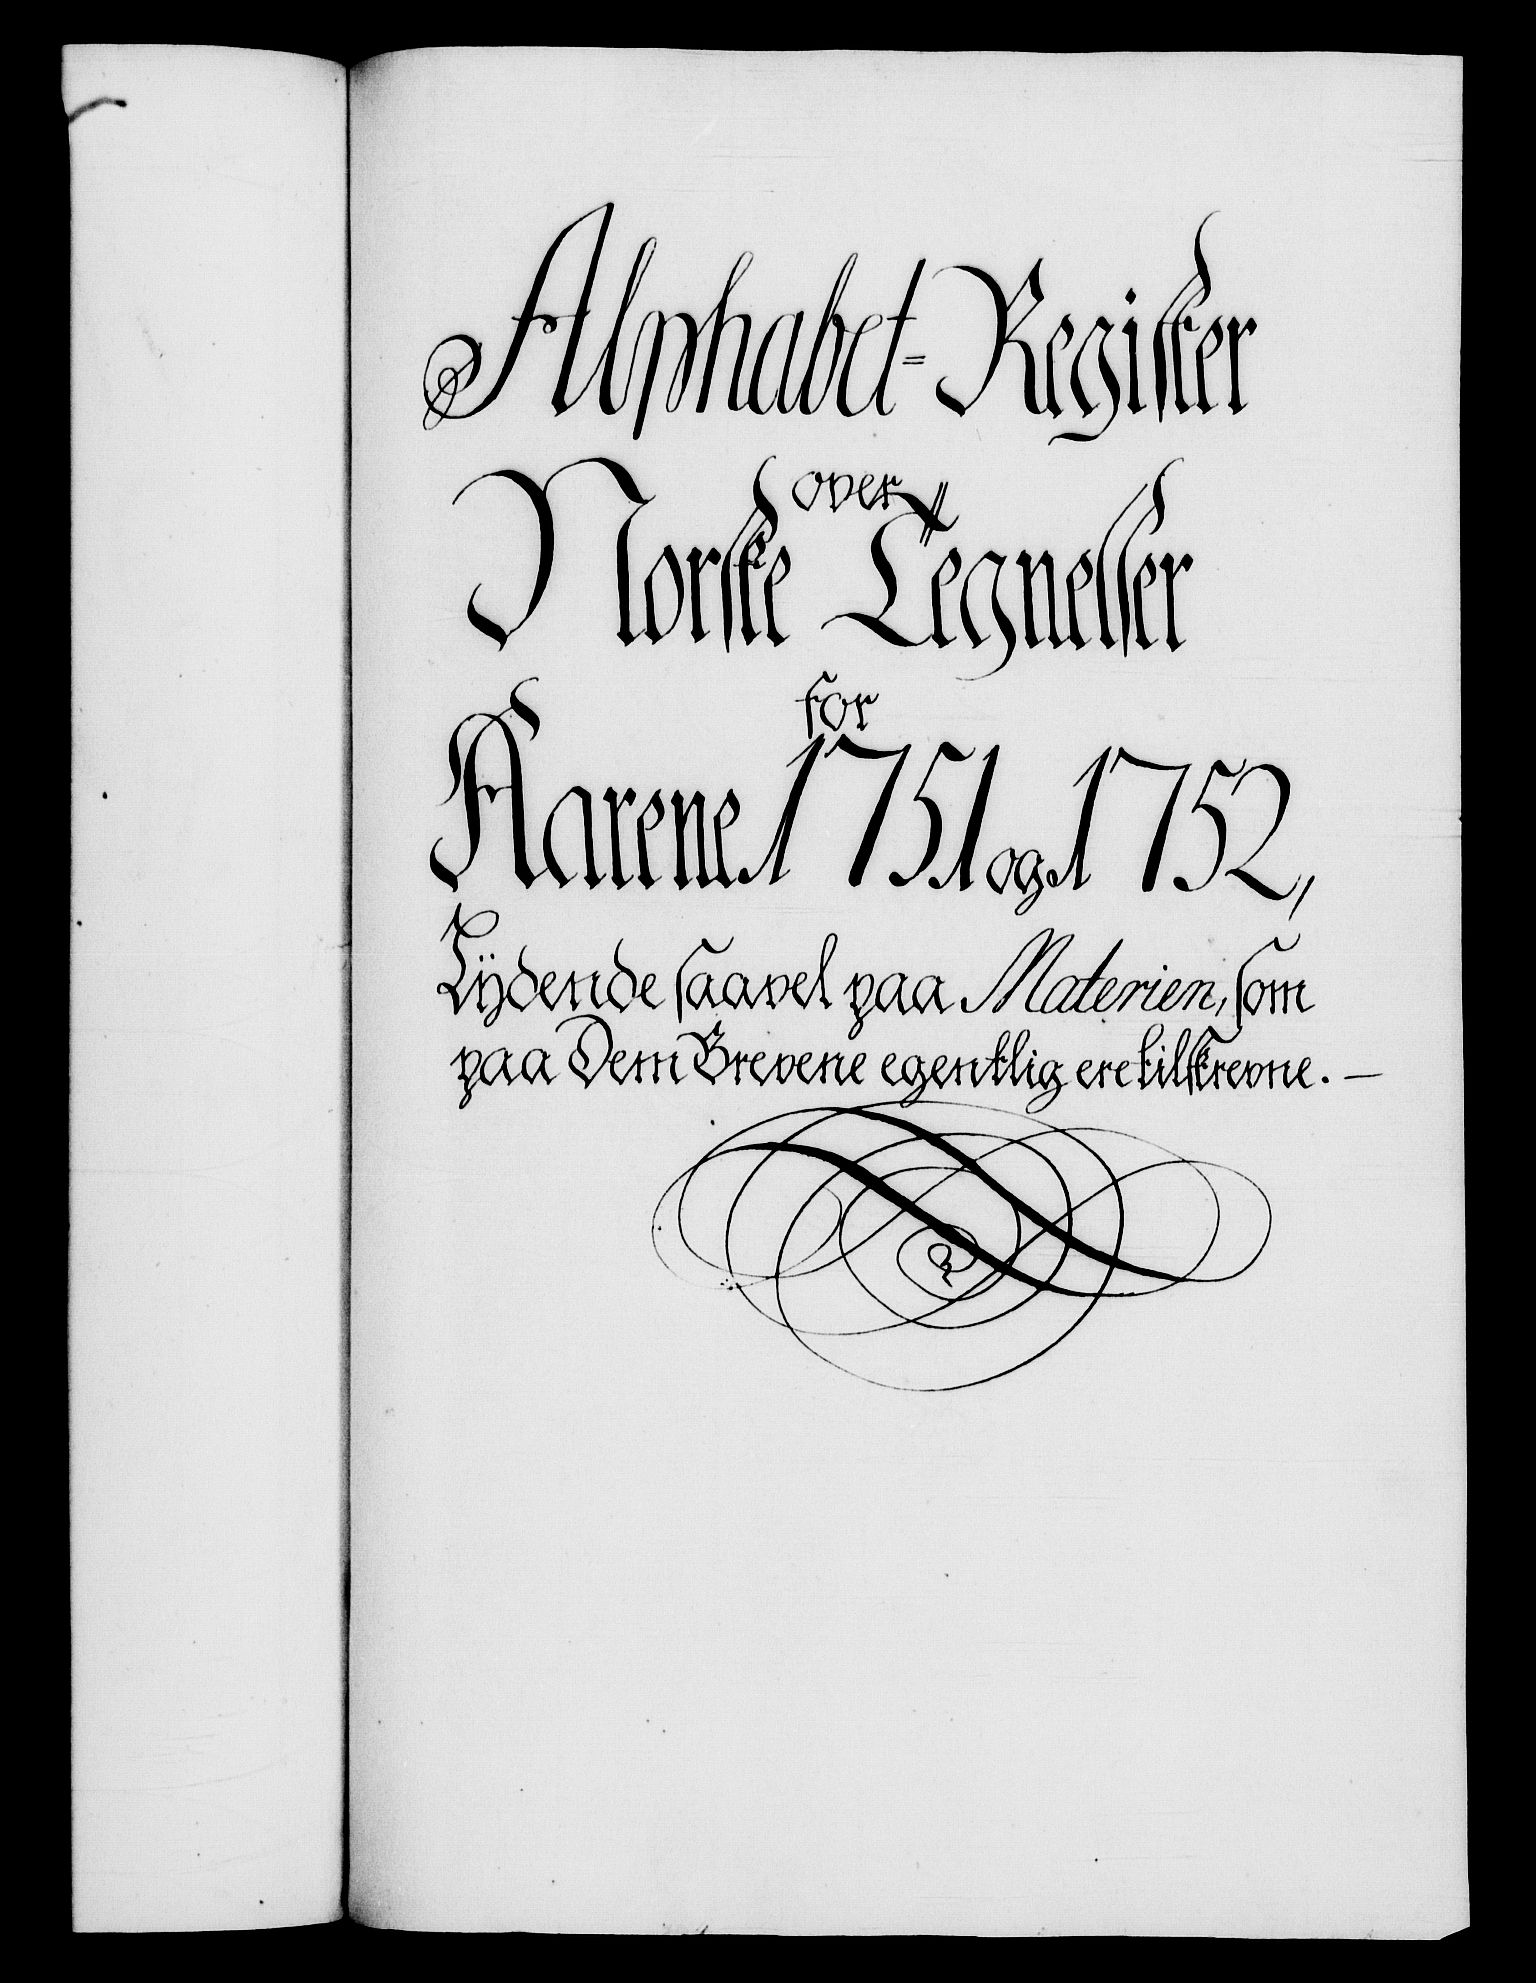 Alphabet=Register
over
Norske Tegnelser
for
Aarene 1751 og 1752,
Lÿdende saavel paa Materien, som
paa Dem Brevene egentlig ere tilskrevne. —